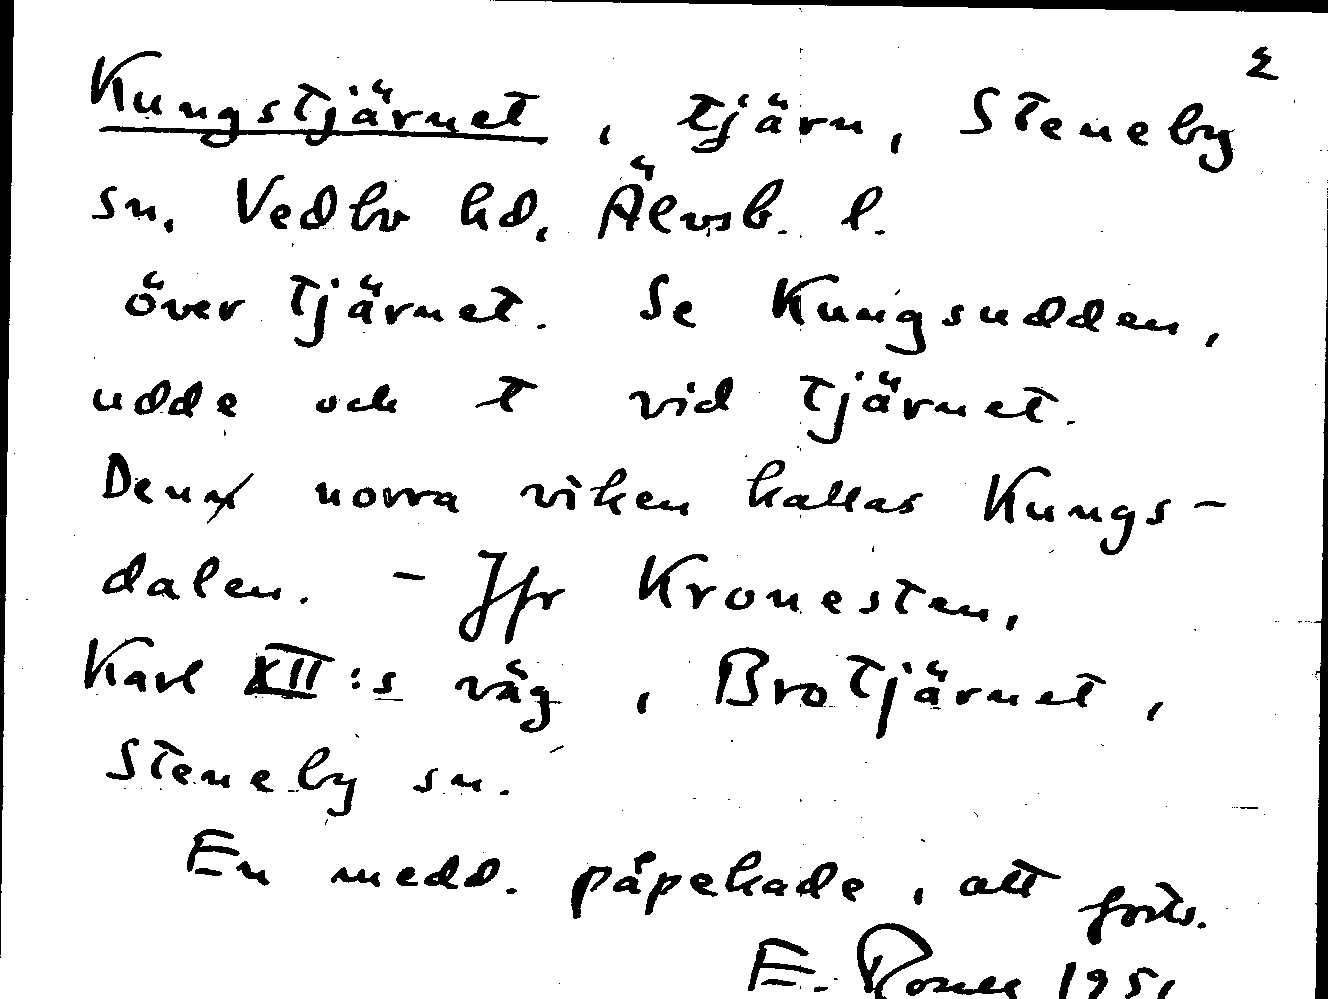 2
Kungstjärnet, tjärn, Steneby
sn, Vedbo hd, Älvsb. l.
över tjärnet. Se Kungsudden,
udde och t vid tjärnet.
Den norra viken kallas Kungs-
dalen. - Jfr Kronesten,
Karl XII:s väg, Brotjärnet,
Steneby sn.
En medd. påpekade, att forts.
E. 1951